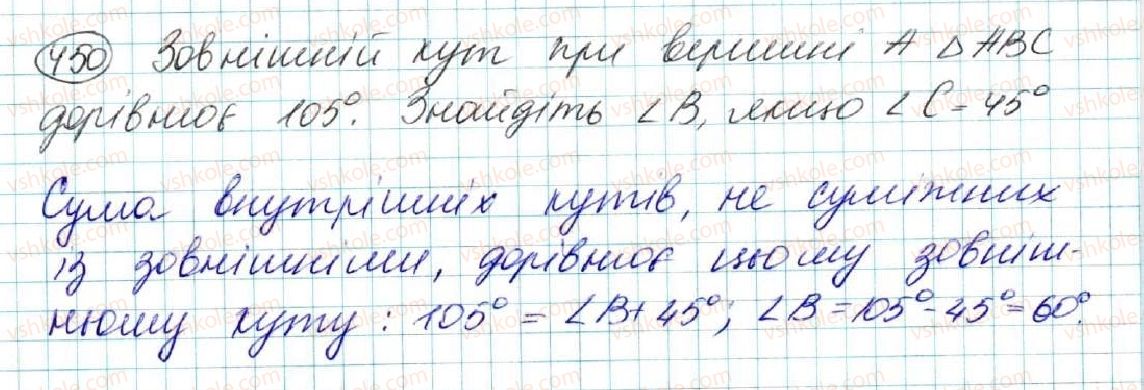 450 Зовнішній кут при вершині A △ABC
дорівнює 105°. Знайдіть ∠B, якщо ∠C = 45°
Сума внутрішніх кутів, не суміжних
із зовнішніми, дорівнює цьому зовніш-
ньому куту: 105° = ∠B + 45°; ∠B = 105° - 45° = 60°.